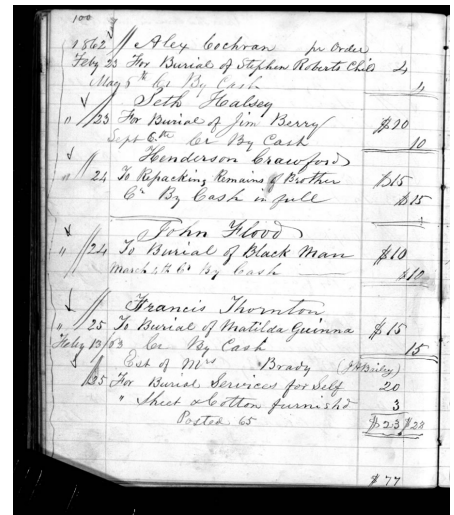 100
1862 // Alex Cochran pr Order
Feby 23 For Burial of Stephen Roberts Child 4
May 8th Cr By Cash 4
Seth Halsey
" 23 For Burial of Jim Berry $10
Sept 6th Cr By Cash 10
Henderson Crawford
" 24 To Repacking Remains of Brother $15
Cr By Cash in full $15
John Flood
" 24 To Burial of Black Man $10
March 4th Cr By Cash $10
Francis Thornton
" 25 To Burial of Matilda Guinna $15
Feby 13/63 Cr By Cash 15
Est of Mrs Brady
25 For Burial Services for Self 20
" Sheet & Cotton furnishd 3
Posted 65 $23 $23
$77